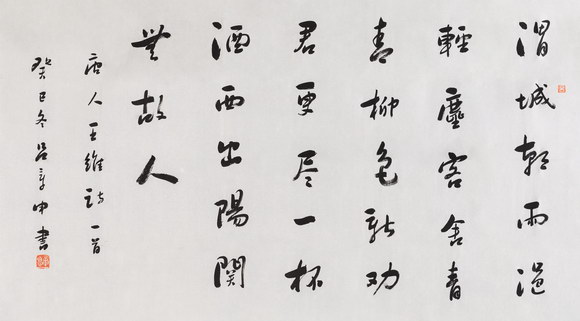 渭城朝雨浥
輕塵客舍青
青柳色新劝
君更尽一杯
酒西出陽関
無故人
唐人王維詩一首
癸巳冬吕章申書